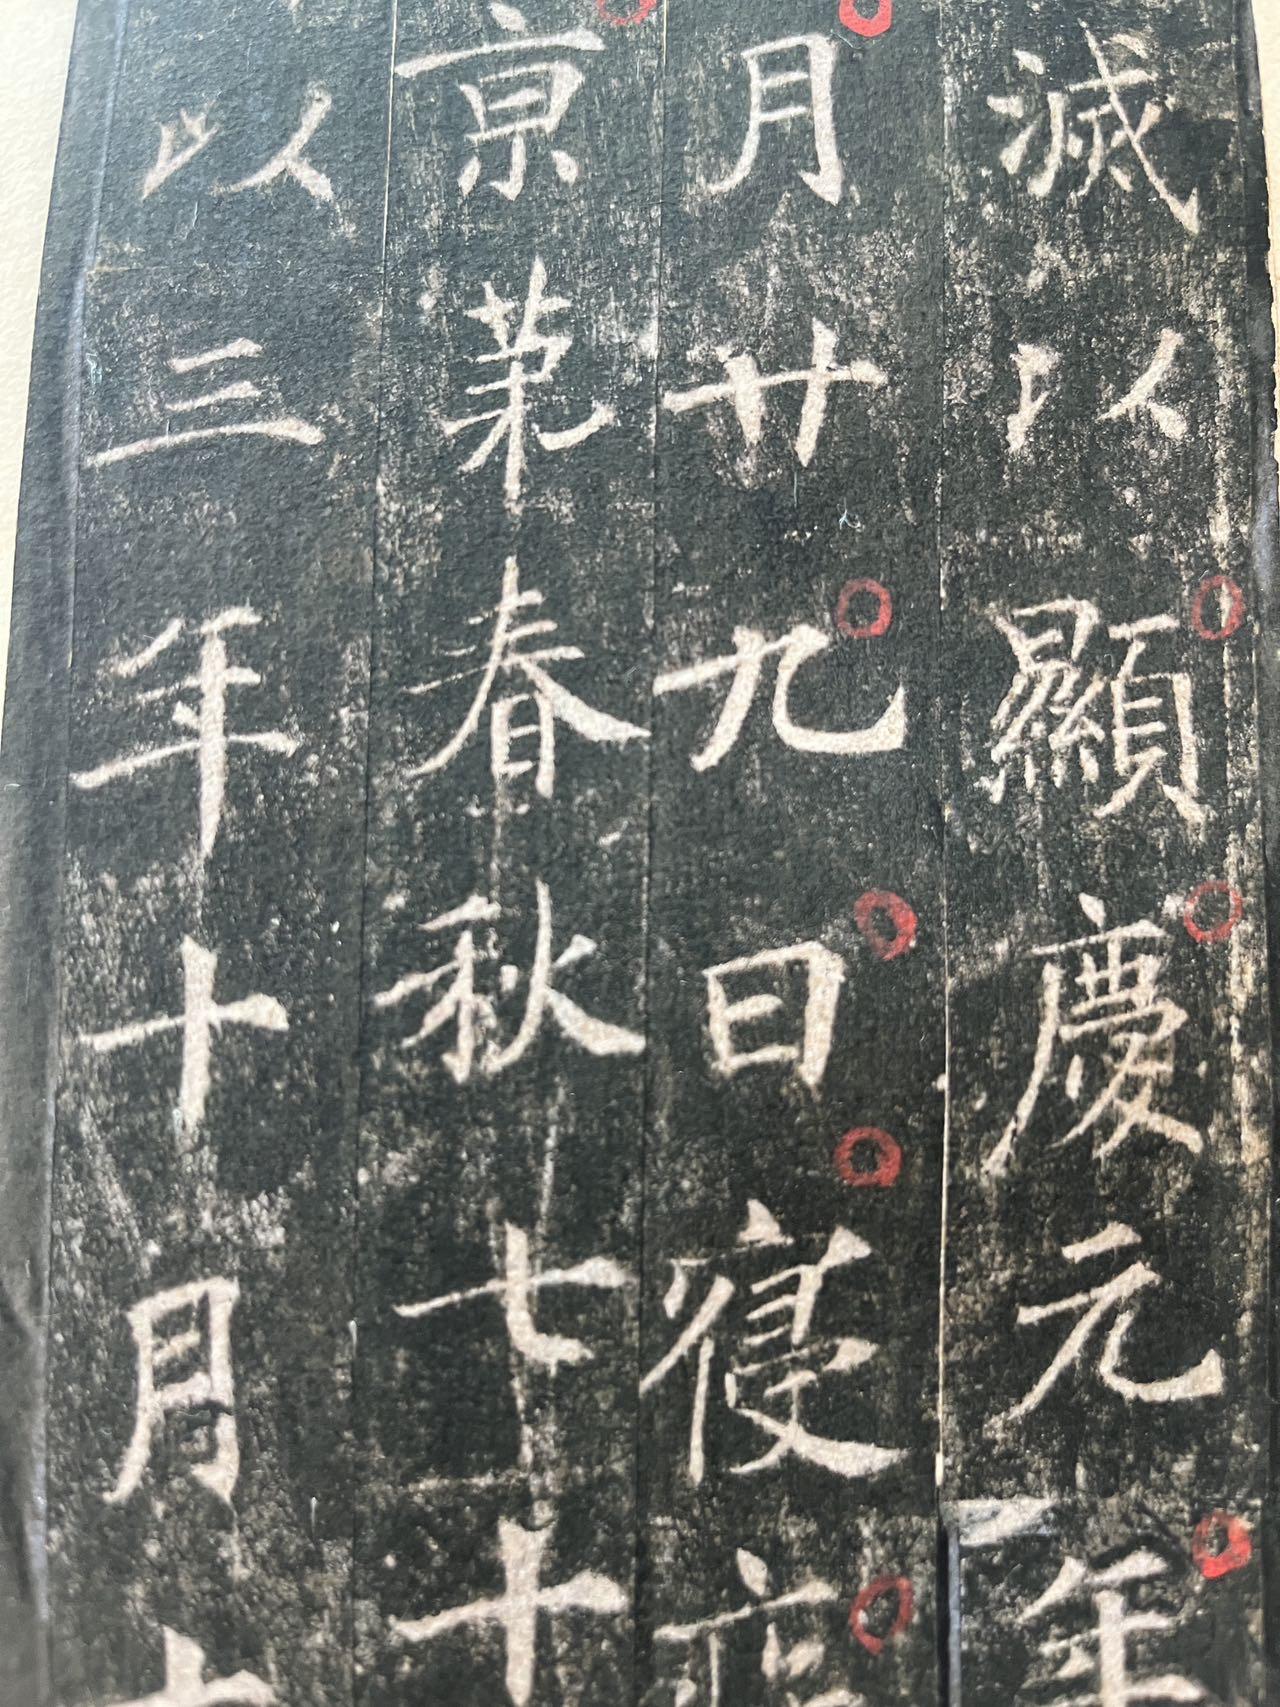 滅以顯慶元年
月廿九日寢疾
京苐春秋七十
以三年十月